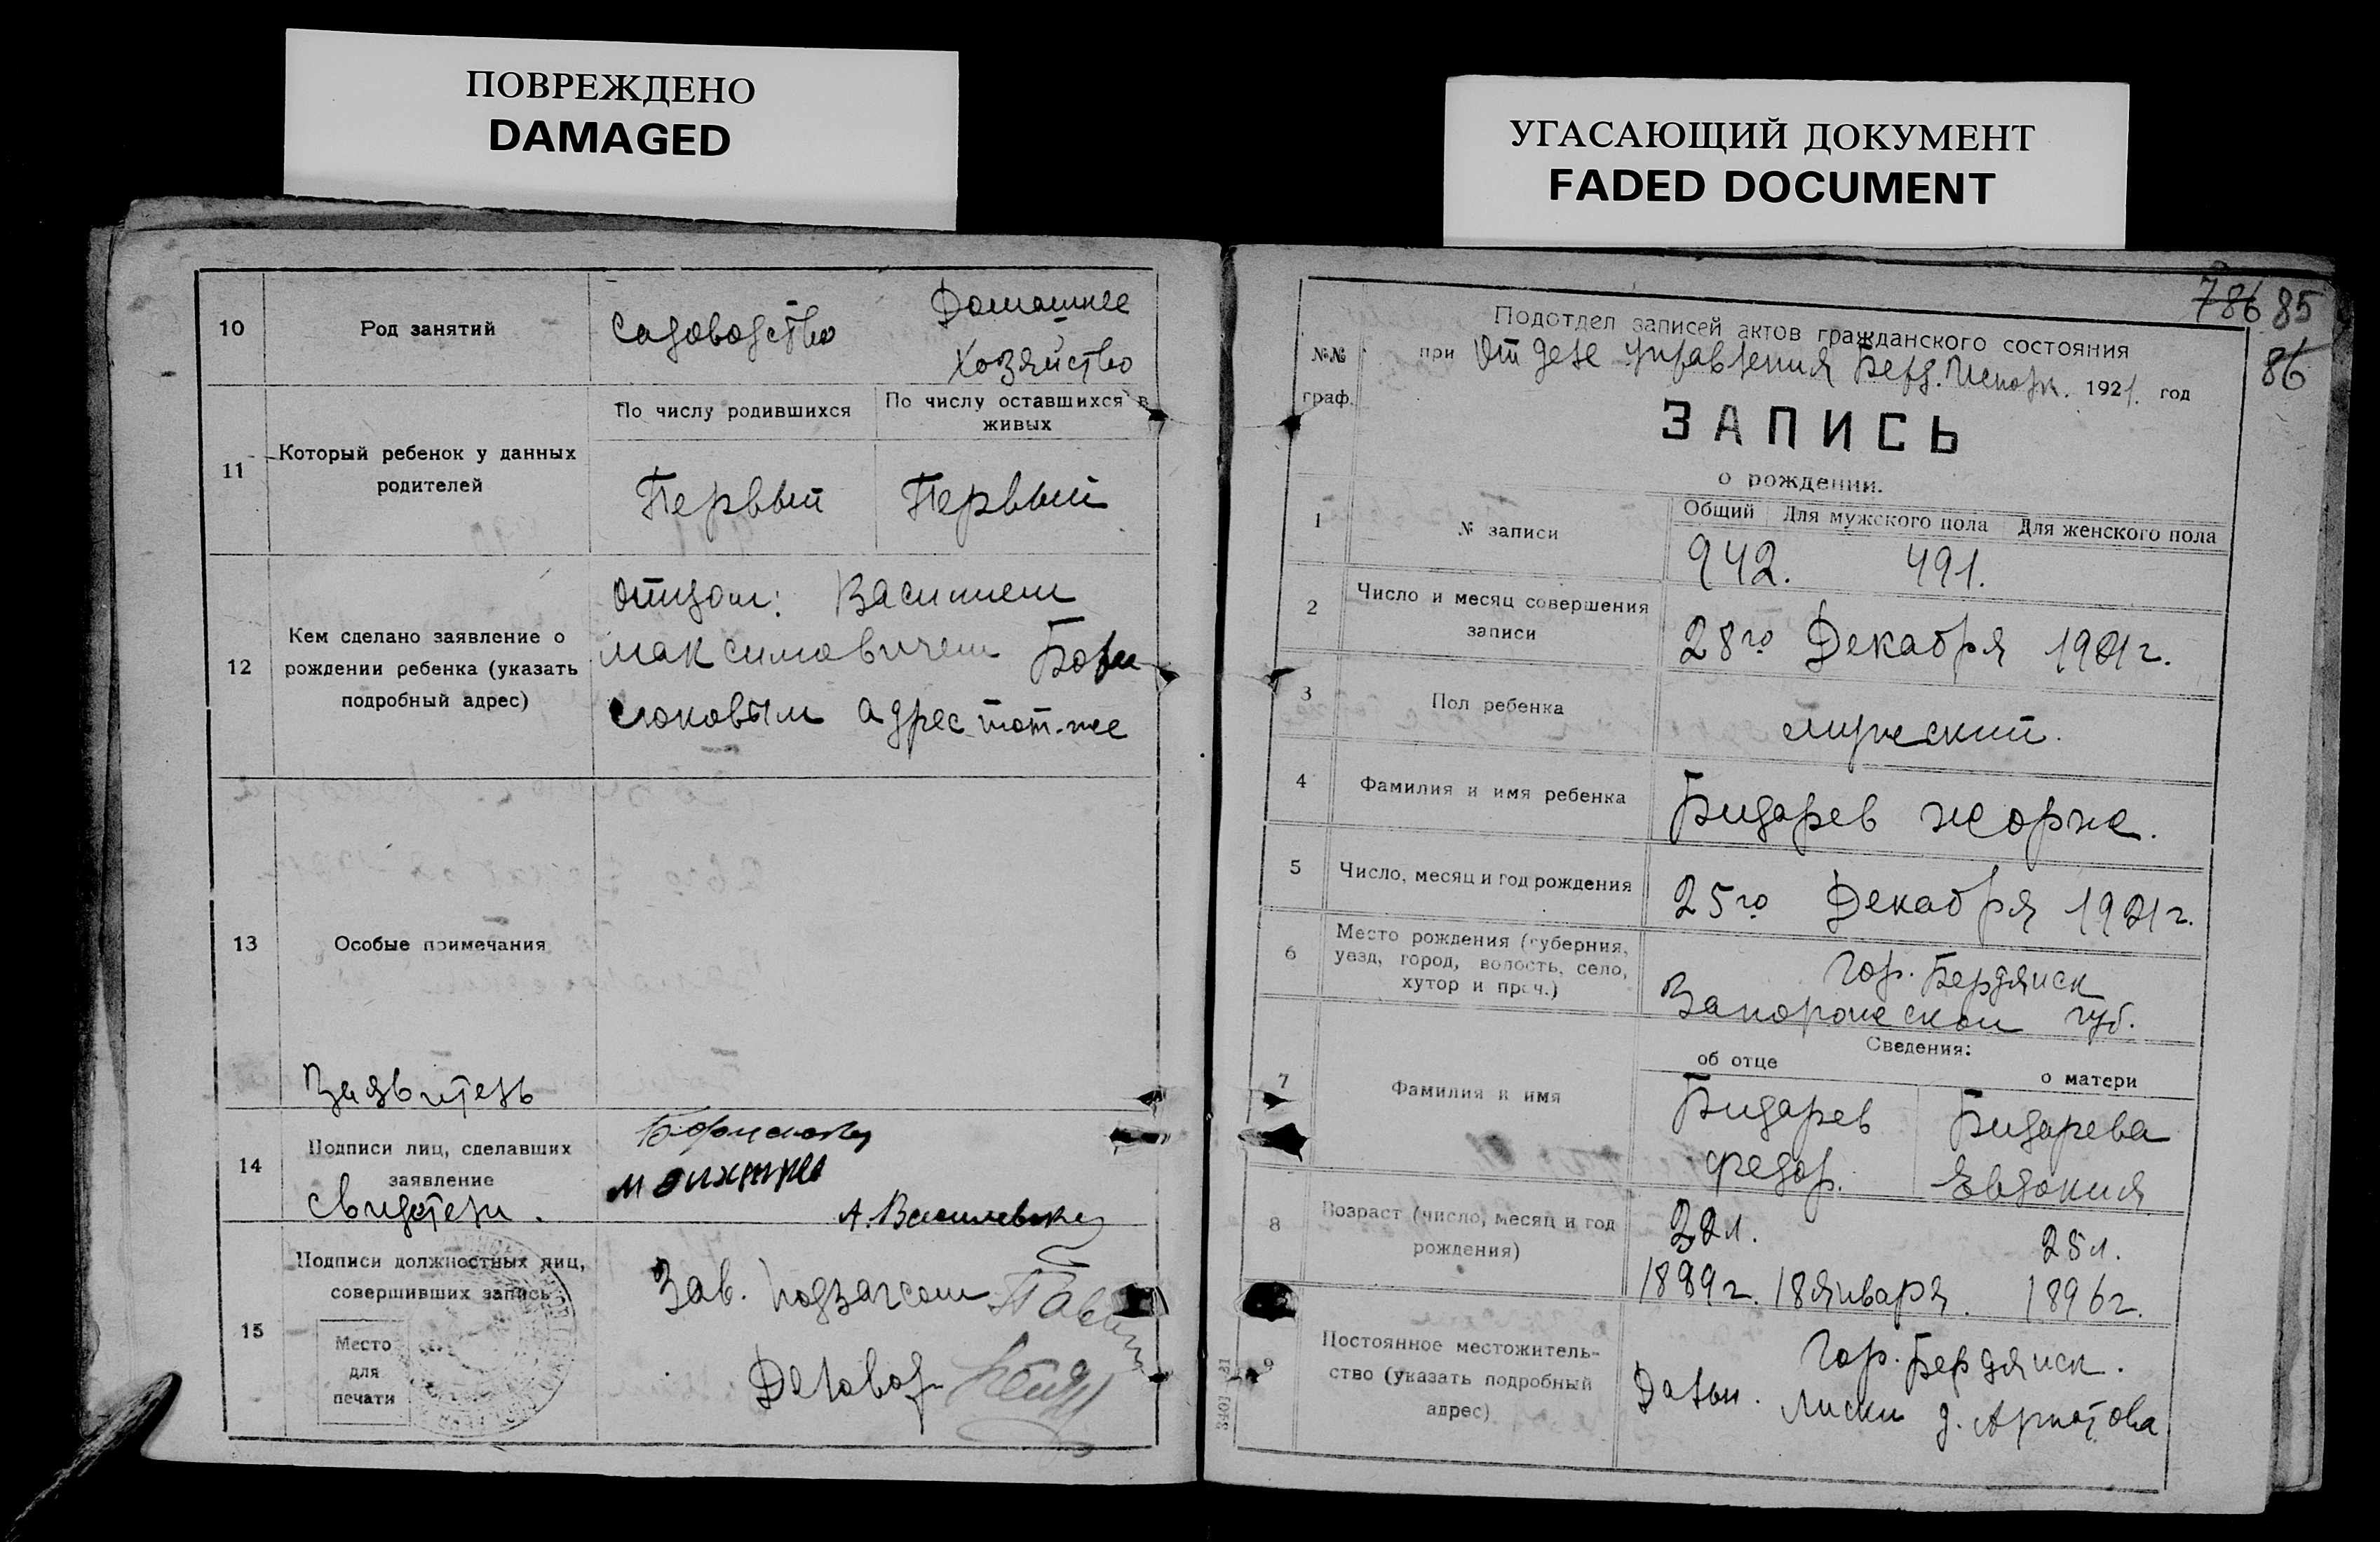 ПОВРЕЖДЕНО
DAMAGED
УГАСАЮЩИЙ ДОКУМЕНТ
FADED DOCUMENT
10
Род занятий
Садоводство
Домашнее
Хозяйство
11
Который ребенок у данных
родителей
По числу родившихся
По числу оставшихся в
живых
Первый
Первый
12
Кем сделано заявление о
рождении ребенка (указать
подробный адрес)
Отцом: Василием
Максимовичем Бори
слюковым адрес тот-же
13
Особые примечания
Заявитель
14
Подписи лиц, сделавших
заявление
Свидетели.
А. Василевский
15
Подписи должностных лиц,
совершивших запись
Место
для
печати
Зав. подзагсом
Деловод
786 85
86
№№
граф.
Подотдел записей актов гражданского состояния
при Отделе Управления Берд. Исполк. 1921. год
ЗАПИСЬ
о рождении.
1
№ записи
Общий
Для мужского пола
Для женского пола
942.
491.
2
Число и месяц совершения
записи
28го Декабря 1921г.
3
Пол ребенка
мужский.
4
Фамилия и имя ребенка
Бидарев Жорж.
5
Число, месяц и год рождения
25го Декабря 1921г.
6
Место рождения (губерния,
уезд, город, волость, село,
хутор и проч.)
Гор. Бердянск
Запорожской губ.
7
Фамилия и имя
Сведения:
об отце
о матери
Бидарев
Федор.
Бидарева
Евдокия
8
Возраст (число, месяц и год
рождения)
32л.
25л.
1889г. 18 Января.
1896г.
9
Постоянное местожитель-
ство (указать подробный
адрес)
Гор. Бердянск.
Дальн. Лиски д.